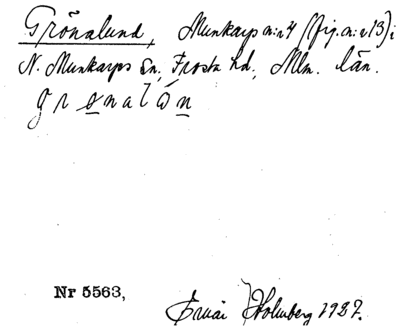 Grönalund, Munkarp n:r 4 (fig. n:r 13) i
N. Munkarps sn, Frosta hd., Mlm. län.
grønalón
Nr 5563,
Holmberg 1927.